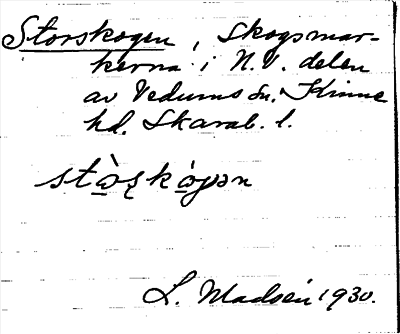 Storskogen, Skogsmar-
kerna i N.V. delen
av Vedums sn. Kinne
hd. Skarab. l.
stɷ̀ʂkɷ̀gən
L. Madsén 1930.